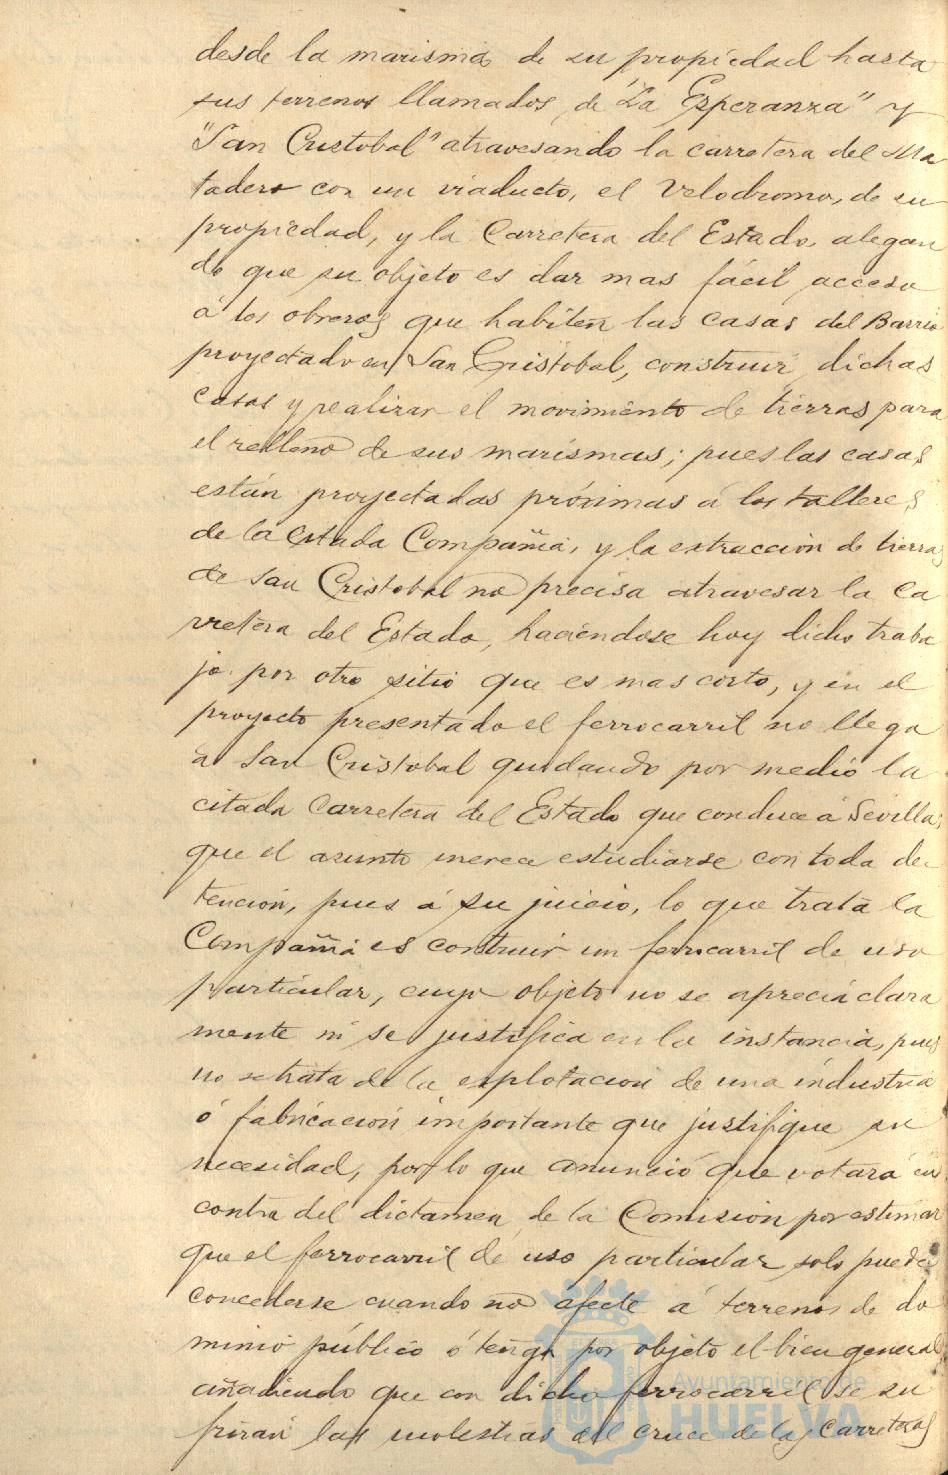 desde la marisma de su propiedad hasta
sus terrenos llamados de "La Esperanza" y
"San Cristobal" atravesando la carretera del Ma
tadero con un viaducto, el Velodromo, de su
propiedad, y la Carretera del Estado, alegan
do que su objeto es dar mas fácil acceso
á los obreros que habiten las casas del Barrio
proyectado en San Cristobal, construir dichas
casas y realizar el movimiento de tierras para
el relleno de sus marismas; pues las casas
están proyectadas próximas á los talleres
de la citada Compañia, y la extracción de tierras
de San Cristobal no precisa atravesar la Ca
rretera del Estado, haciendose hoy dicho traba
jo por otro sitio que es mas corto, y en el
proyecto presentado el ferrocarril no llega
a San Cristobal quedando por medio la
citada Carretera del Estado que conduce á Sevilla;
que el asunto merece estudiarse con toda de
tención, pues á su juicio, lo que trata la
Compañia es contruir un ferrocarril de uso
particular, cuyo objeto no se aprecia clara
mente ni se justifica en la instancia, pues
no se trata de la explotacion de una industria
ó fabricación importante que justifique su
necesidad, por lo que anunció que votará en
contra del dictamen de la Comision por estimar
que el ferrocarril de uso particular solo puede
concederse cuando no afecte á terrenos de do
minio público ó tenga por objeto el bien general,
añadiendo que con dicho ferrocarril se su
frirán las molestias del cruce de las Carreteras
Ayuntamiento de
HUELVA